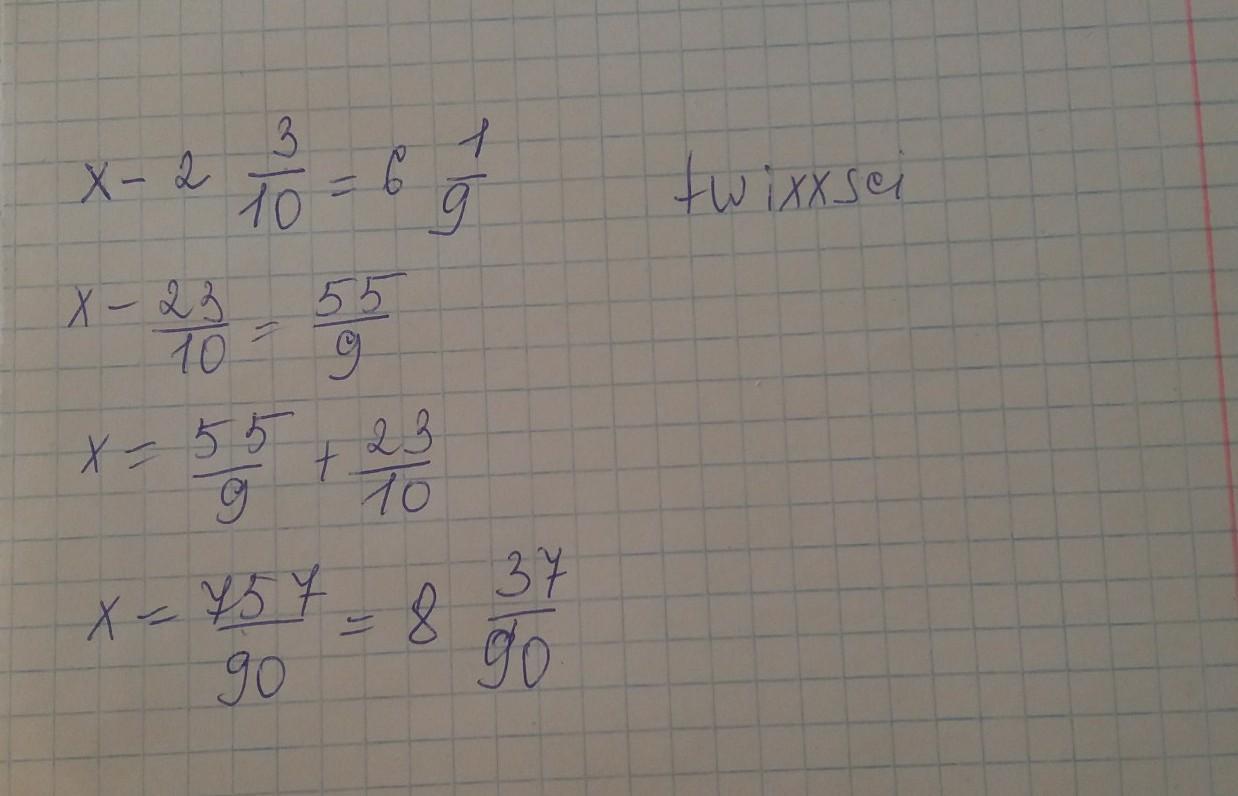 x - 2 3/10 = 6 1/9 twixxsci
x - 23/10 = 55/9
x = 55/9 + 23/10
x = 757/90 = 8 37/90